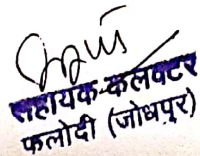 सहायक-कलक्टर
फलोदी (जोधपुर)